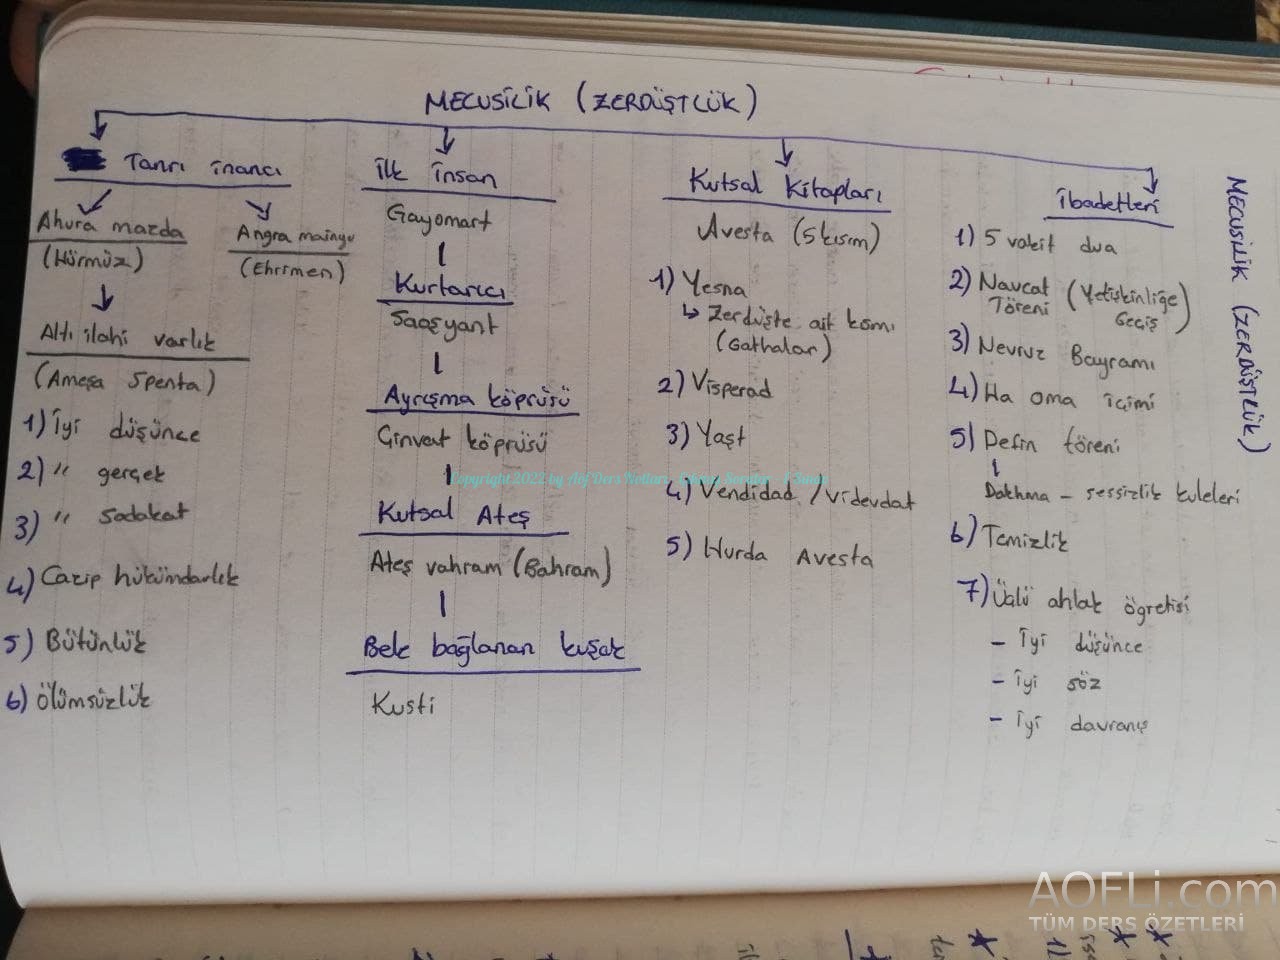 MECUSİLİK (ZERDÜŞTLÜK)
Tanrı inancı
Ahura mazda
(Hürmüz)
Angra mainyu
(Ehrimen)
Altı ilahi varlık
(Ameşa Spenta)
1) İyi düşünce
2) " gerçek
3) " Sadakat
4) Cazip hükümdarlık
5) Bütünlük
6) Ölümsüzlük
İlk insan
Gayomart
Kurtarıcı
Saoşyant
Ayrışma köprüsü
Çinvat köprüsü
Kutsal Ateş
Ateş vahram (Bahram)
Bele bağlanan kuşak
Kusti
Kutsal Kitapları
Avesta (5 kısım)
1) Yesna
↳ Zerdüşte ait kısmı
(Gathalar)
2) Visperad
3) Yaşt
4) Vendidad / Videvdat
5) Hurda Avesta
İbadetleri
1) 5 vakit dua
2) Navcat Töreni (Yetişkinliğe Geçiş)
3) Nevruz Bayramı
4) Ha oma içimi
5) Defin töreni
Dakhma - sessizlik kuleleri
6) Temizlik
7) Üçlü ahlak öğretisi
- İyi düşünce
- İyi söz
- İyi davranış
MECUSİLİK (ZERDÜŞTLÜK)
Copyright 2022 by Aöf Ders Notları
AOFLi.com
TÜM DERS ÖZETLERİ